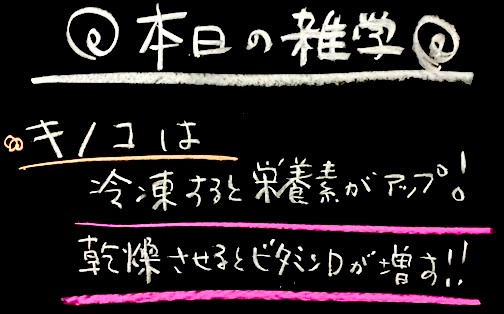 本日の雑学
キノコは
冷凍すると栄養素がアップ!
乾燥させるとビタミンDが増す!!